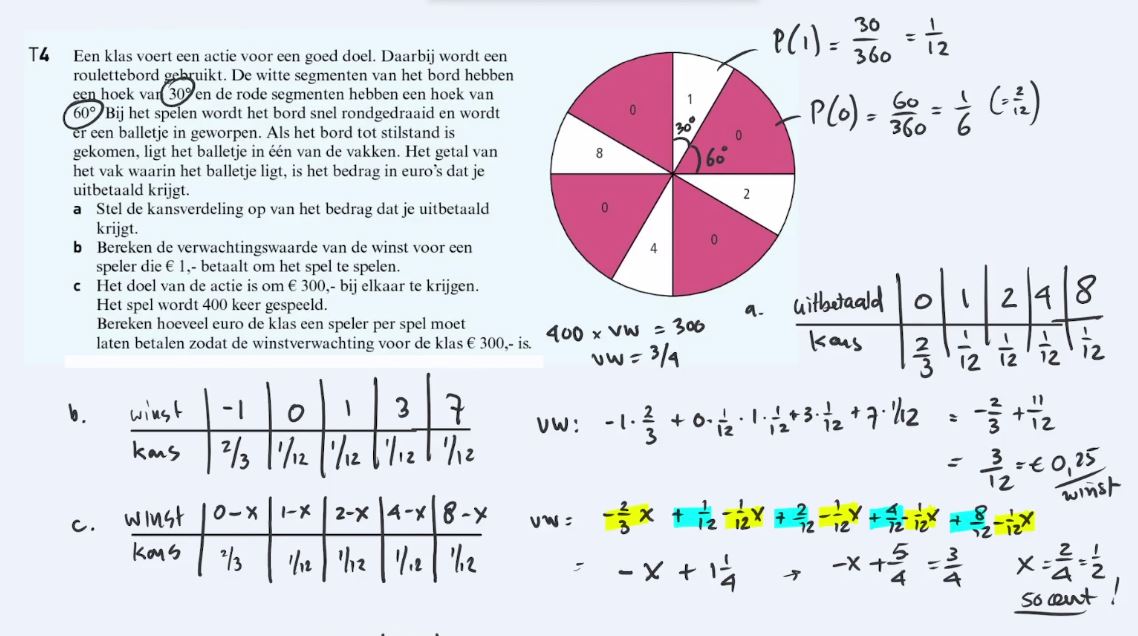 T4 Een klas voert een actie voor een goed doel. Daarbij wordt een
roulettebord gebruikt. De witte segmenten van het bord hebben
een hoek van 30° en de rode segmenten hebben een hoek van
60°. Bij het spelen wordt het bord snel rondgedraaid en wordt
er een balletje in geworpen. Als het bord tot stilstand is
gekomen, ligt het balletje in één van de vakken. Het getal van
het vak waarin het balletje ligt, is het bedrag in euro's dat je
uitbetaald krijgt.
a Stel de kansverdeling op van het bedrag dat je uitbetaald
krijgt.
b Bereken de verwachtingswaarde van de winst voor een
speler die € 1,- betaalt om het spel te spelen.
c Het doel van de actie is om € 300,- bij elkaar te krijgen.
Het spel wordt 400 keer gespeeld.
Bereken hoeveel euro de klas een speler per spel moet
laten betalen zodat de winstverwachting voor de klas € 300,- is.
0 1 0
30°
60°
8 2
0 4 0
P(1) = 30/360 = 1/12
P(0) = 60/360 = 1/6 (= 2/12)
400 x VW = 300
VW = 3/4
a. uitbetaald | 0 | 1 | 2 | 4 | 8
kans | 2/3 | 1/12 | 1/12 | 1/12 | 1/12
b. winst | -1 | 0 | 1 | 3 | 7
kans | 2/3 | 1/12 | 1/12 | 1/12 | 1/12
VW: -1 · 2/3 + 0 · 1/12 · 1 · 1/12 + 3 · 1/12 + 7 · 1/12 = -2/3 + 11/12
= 3/12 = € 0,25
winst
c. winst | 0-x | 1-x | 2-x | 4-x | 8-x
kans | 2/3 | 1/12 | 1/12 | 1/12 | 1/12
VW = -2/3 x + 1/12 - 1/12 x + 2/12 - 1/12 x + 4/12 - 1/12 x + 8/12 - 1/12 x
= -x + 1 1/4 → -x + 5/4 = 3/4 x = 2/4 = 1/2
50 cent!